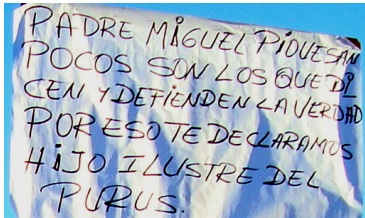 PADRE MIGUEL PIOVESAN
POCOS SON LOS QUE DI
CEN Y DEFIENDEN LA VERDAD
POR ESO TE DECLARAMOS
HIJO ILUSTRE DEL
PURUS.